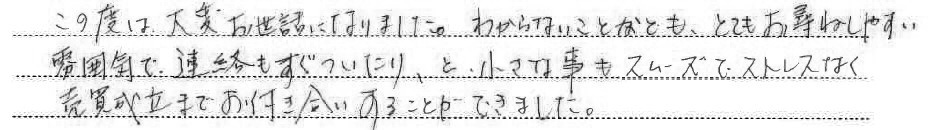 この度は、大変お世話になりました。わからないことなども、とてもお尋ねしやすい
雰囲気で、連絡もすぐついたり、と、小さな事もスムーズでストレスなく
売買成立までお付き合いすることができました。